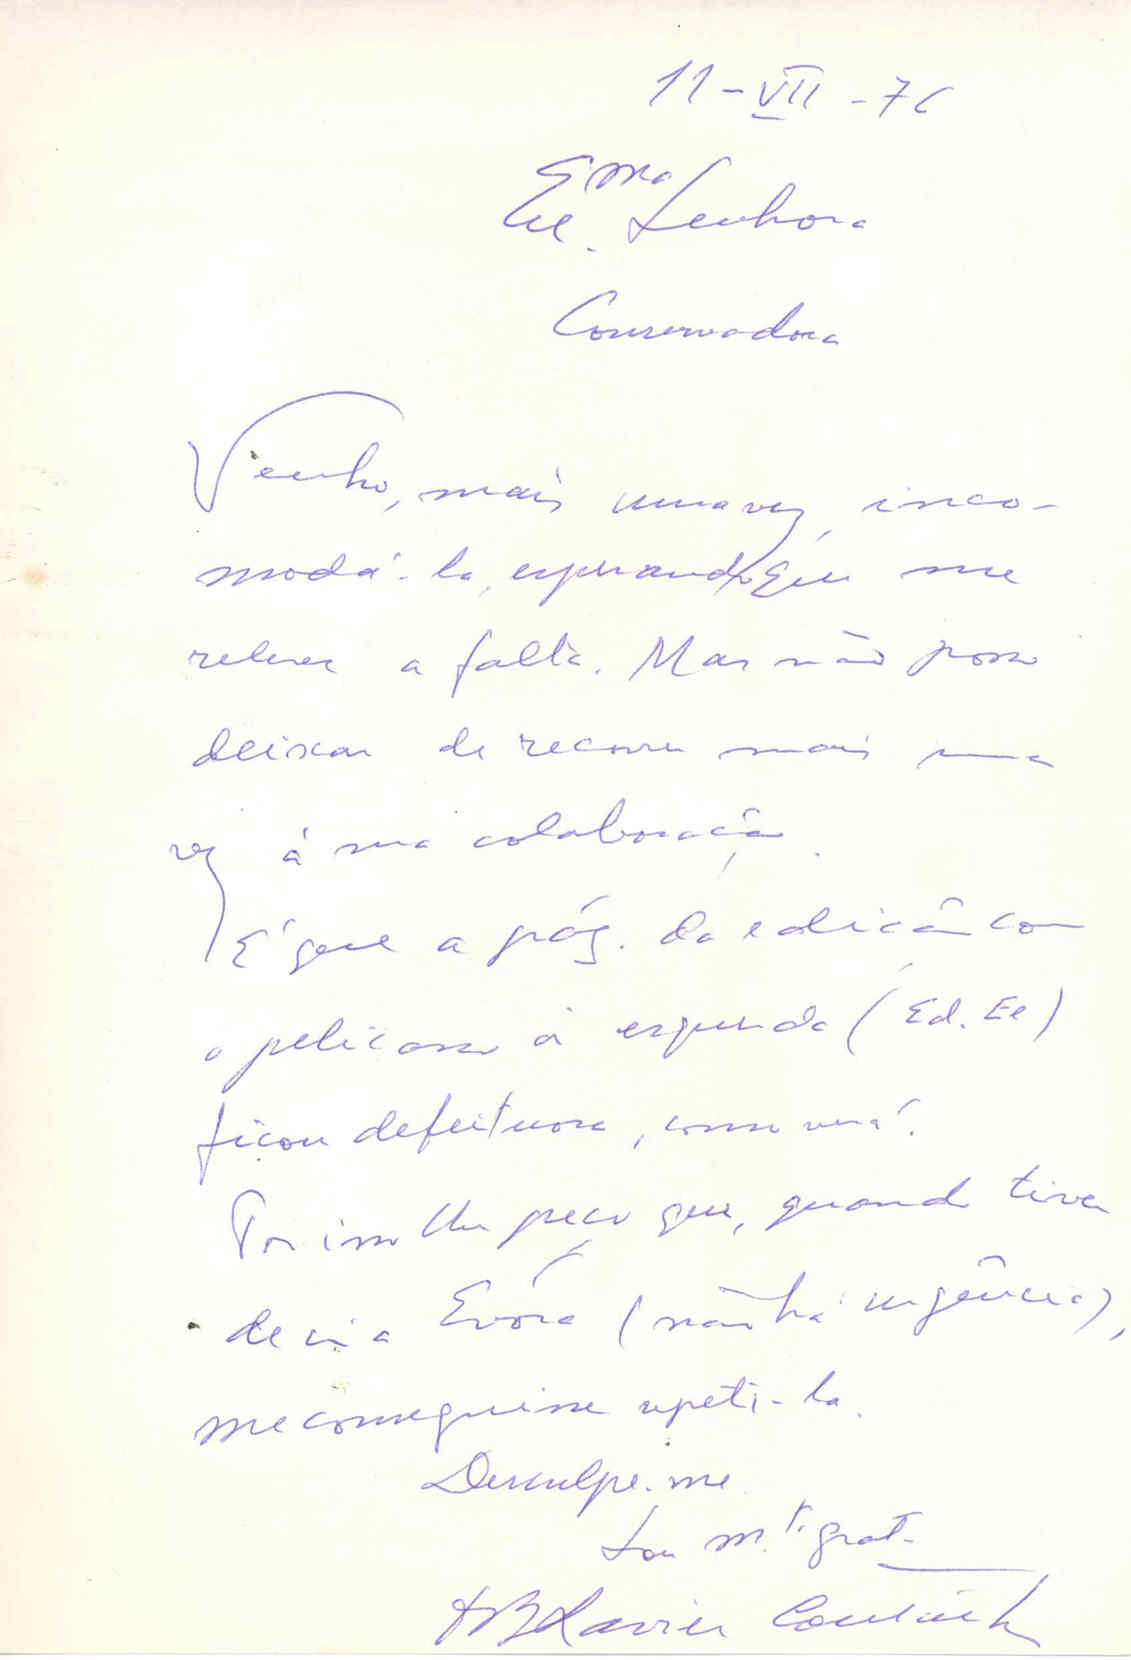 11-VII-76
Ex.ma Senhora
Conservadora
Venho, mais uma vez, inco-
modá-la, esperando que me
releve a falta. Mas não posso
deixar de recorrer mais uma
vez à sua colaboração.
É que a pág. da edição com
o pelicano à esquerda (Ed. Ee)
ficou defeituosa, como verá.
Por isso lhe peço que, quando tiver
de ir a Évora (não há urgência),
me conseguisse repeti-la.
Desculpe-me
Sou m.to grat.
A B Xavier Coutinho